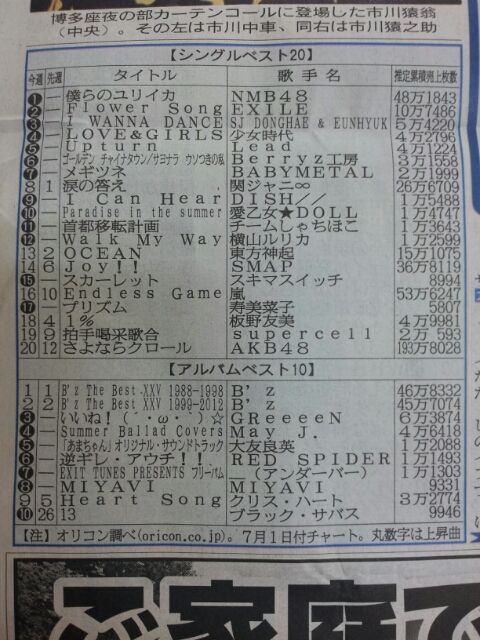 博多座夜の部カーテンコールに登場した市川猿翁
(中央)。その左は市川中車、同右は市川猿之助
【シングルベスト20】
今週 先週 タイトル 歌手名 推定累積売上枚数
❶ 僕らのユリイカ NMB48 48万1843
❷ Flower Song EXILE 10万7486
❸ I WANNA DANCE SJ DONGHAE & EUNHYUK 5万4220
❹ LOVE&GIRLS 少女時代 4万2796
❺ Upturn Lead 4万1224
❻ ゴールデン チャイナタウン/サヨナラ ウソつきの私 Berryz工房 3万1558
❼ メギツネ BABYMETAL 2万1999
8 1 涙の答え 関ジャニ∞ 26万6709
❾ I Can Hear DISH// 1万5488
❿ Paradise in the summer 愛乙女★DOLL 1万4747
⓫ 首都移転計画 チームしゃちほこ 1万3643
⓬ Walk My Way 横山ルリカ 1万2599
13 2 OCEAN 東方神起 15万1075
14 6 Joy!! SMAP 36万8119
⓯ スカーレット スキマスイッチ 8994
16 10 Endless Game 嵐 53万6247
⓱ プリズム 寿美菜子 5807
18 4 1% 板野友美 4万9981
19 9 拍手喝采歌合 supercell 2万 593
20 12 さよならクロール AKB48 193万8028
【アルバムベスト10】
1 1 B'z The Best XXV 1988-1998 B'z 46万8332
2 2 B'z The Best XXV 1999-2012 B'z 45万7074
❸ いいね!(´・ω・`)☆ GReeeeN 6万3874
❹ Summer Ballad Covers May J. 4万6418
❺ 「あまちゃん」オリジナル・サウンドトラック 大友良英 1万2088
❻ 逆ギレ、アウチ!! RED SPIDER 1万1493
❼ EXIT TUNES PRESENTS フリーバム __(アンダーバー) 1万1303
❽ MIYAVI MIYAVI 9331
9 5 Heart Song クリス・ハート 3万2774
❿ 26 13 ブラック・サバス 9946
【注】オリコン調べ(oricon.co.jp)。7月1日付チャート。丸数字は上昇曲
ご家庭で